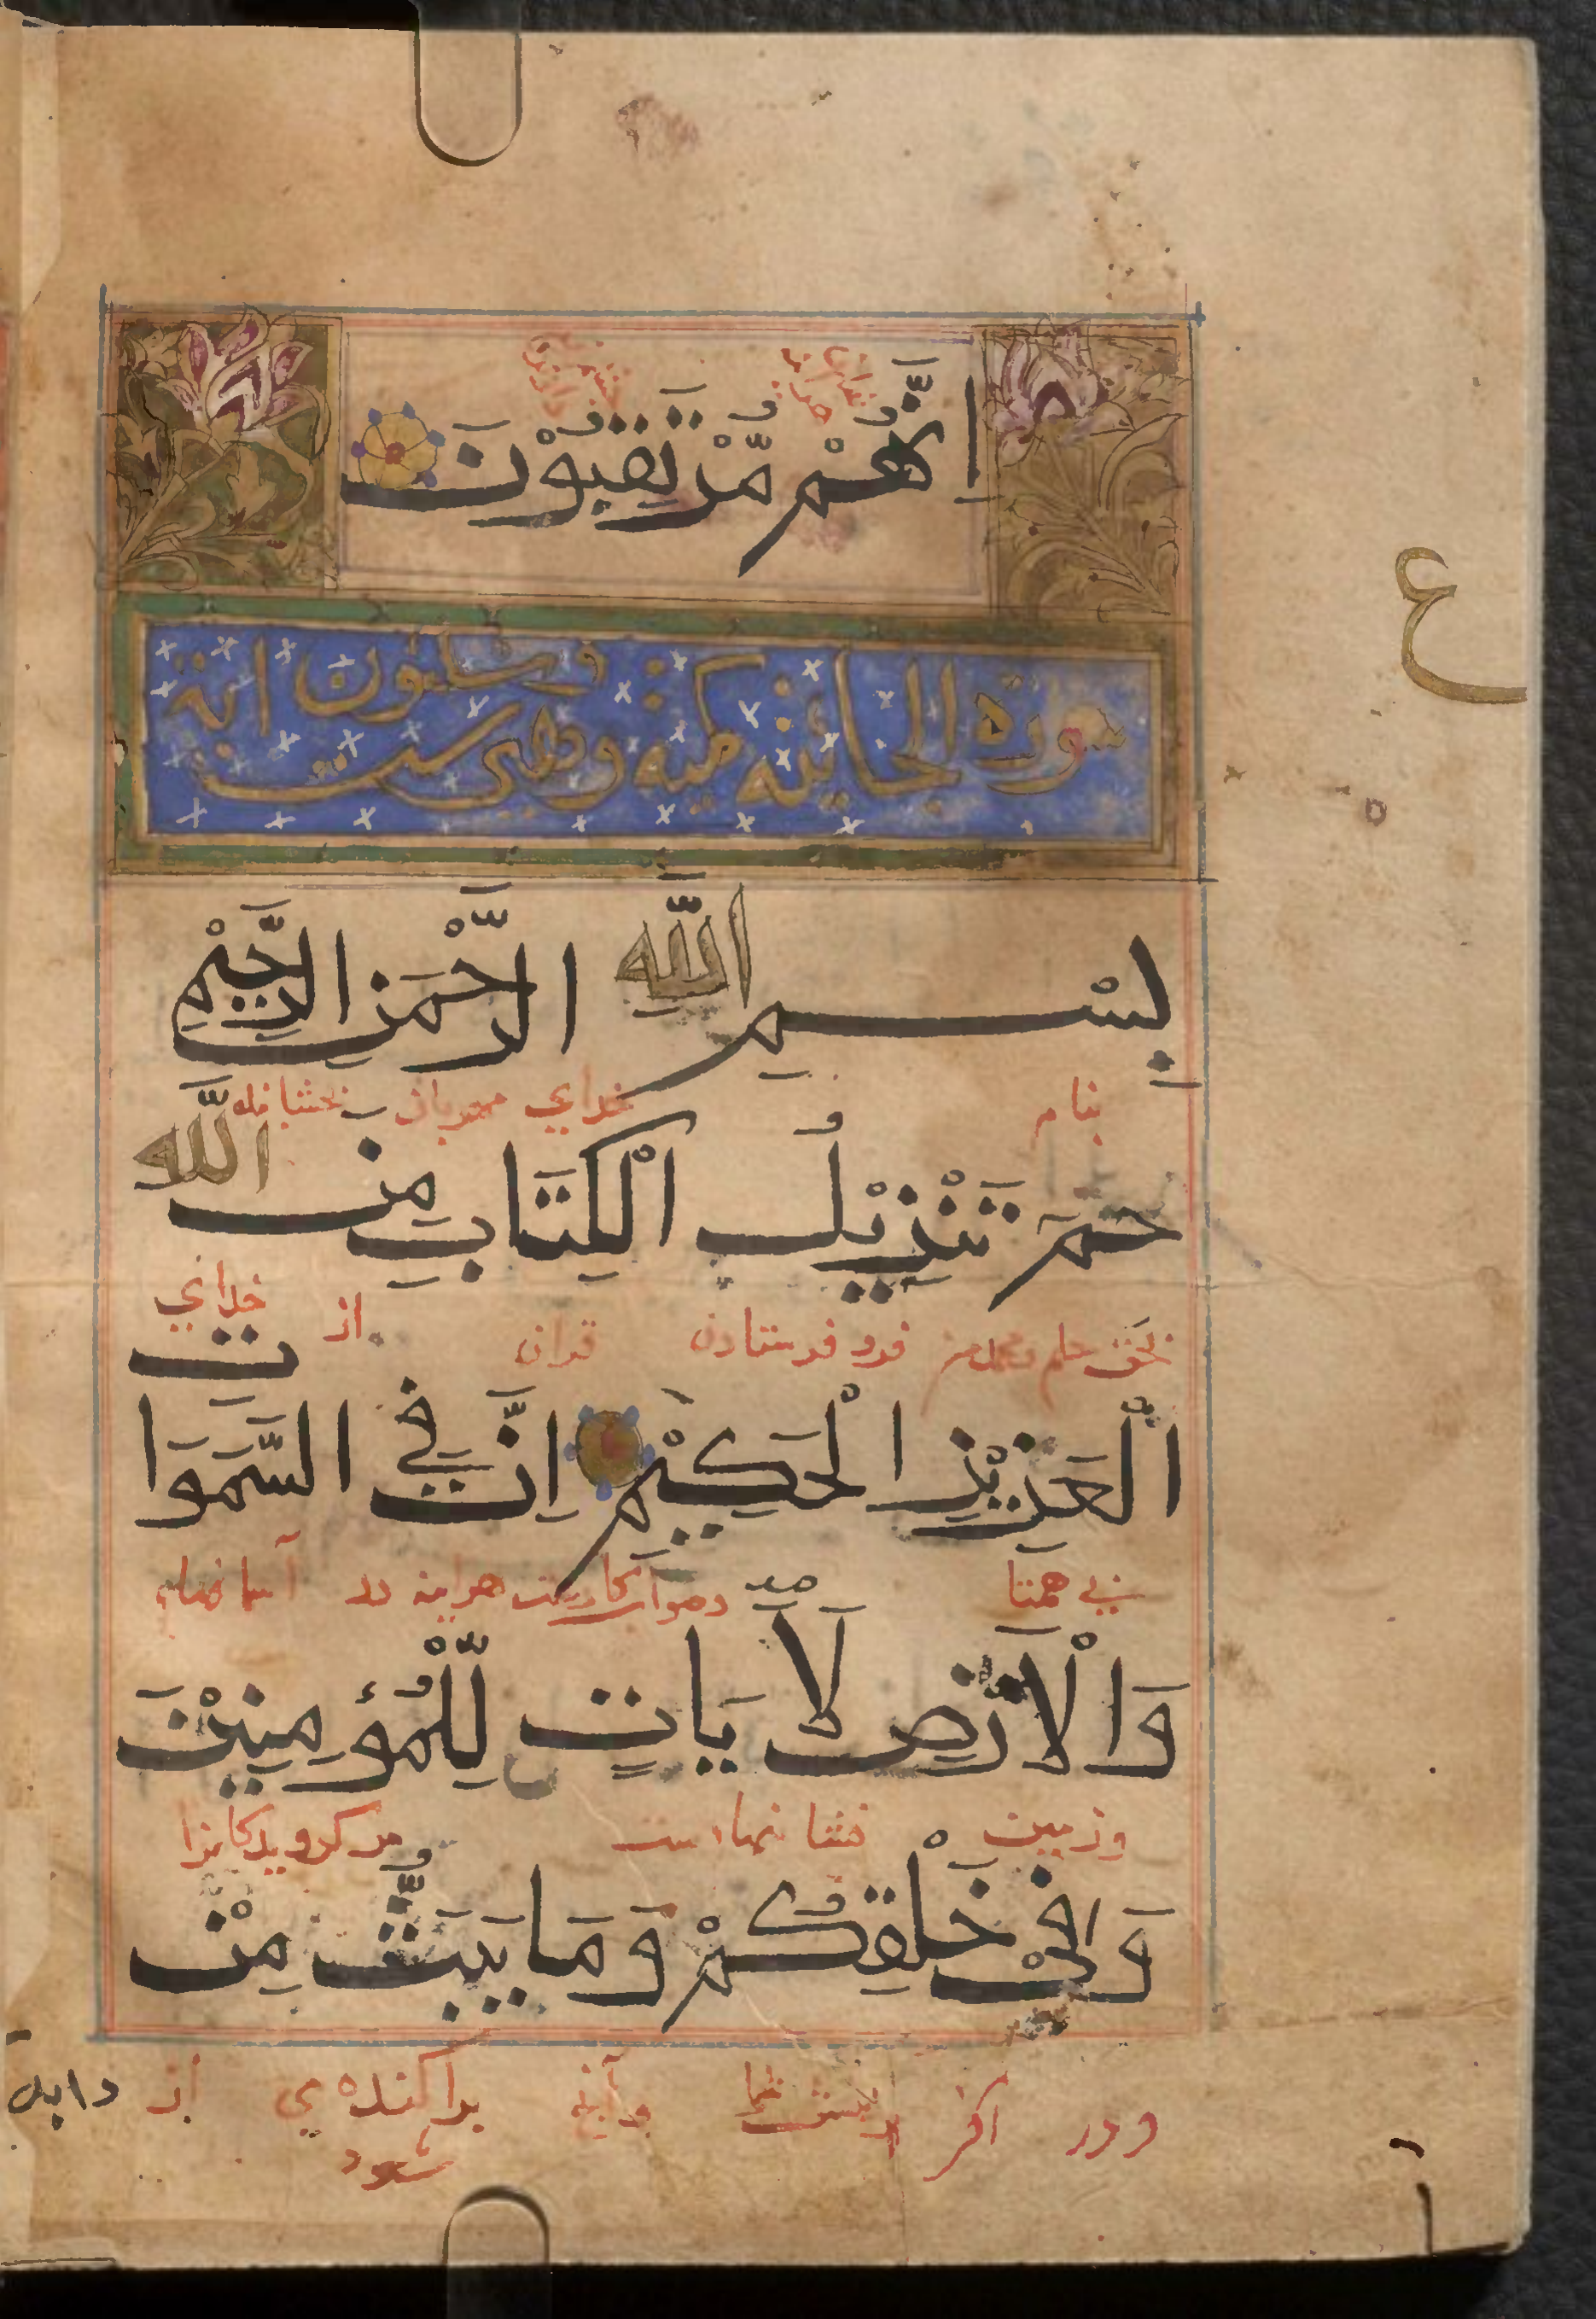 اِنَّهُمْ مُّرْتَقِبُوْنَ
ع
سورة الجاثية مكية وهي ست
وثلثون اية
بِسْمِ اللّٰهِ الرَّحْمَنِ الرَّحِيْمِ
بنام خداي مهربان بخشاينده
حمٓ تَنْزِيْلُ الْكِتَابِ مِنَ اللّٰهِ
بحق حلم فرو فرستادن قران از خداي
الْعَزِيْزِ الْحَكِيْمِ اِنَّ فِي السَّمَوَاتِ
بي همتا هراينه در آسمانها
وَالْاَرْضِ لَاَيَاتٍ لِّلْمُؤْمِنِيْنَ
وزمين نشانهاست مر گرويدگانرا
وَفِيْ خَلْقِكُمْ وَمَا يَبُثُّ مِنْ
ودر آفرينش شما وآنچه پراكنده مي شود از
دابة